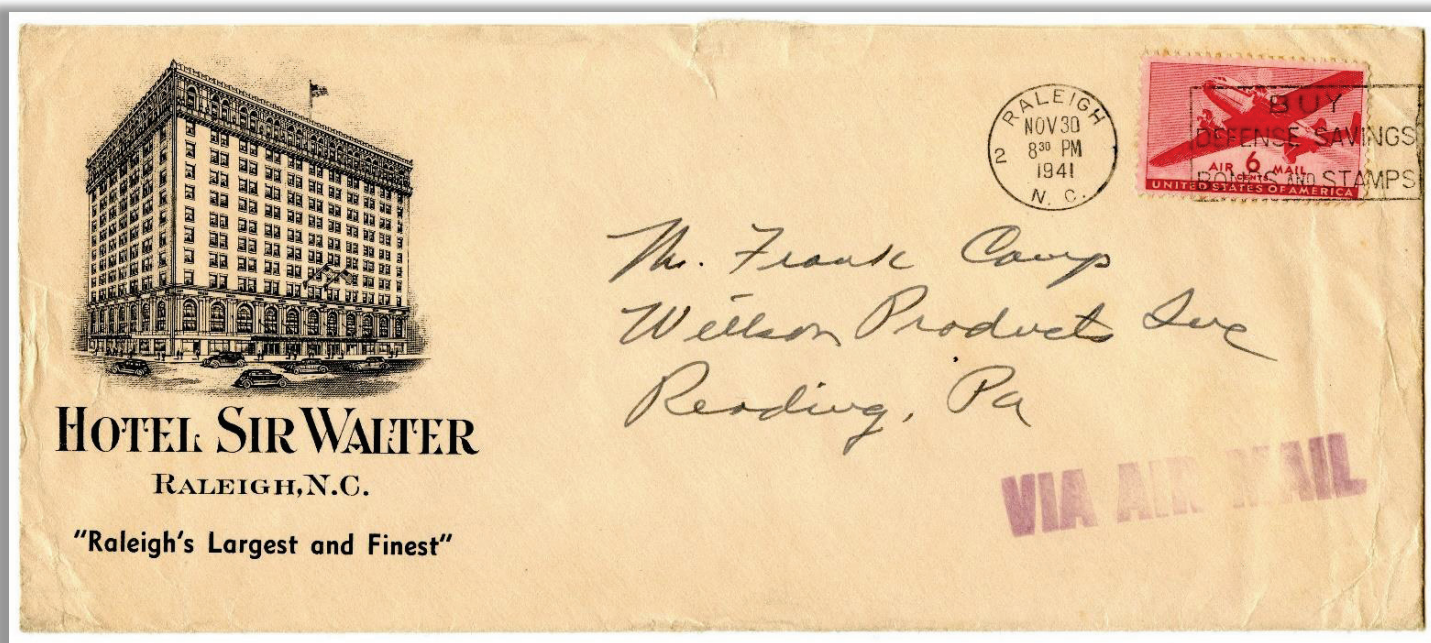 HOTEL SIR WALTER
RALEIGH, N.C.
"Raleigh's Largest and Finest"
RALEIGH
NOV 30
8 30 PM
1941
2
N. C.
BUY
DEFENSE SAVINGS
BONDS AND STAMPS
AIR 6 MAIL
CENTS
UNITED STATES OF AMERICA
Mr. Frank Camp
Willson Products Inc
Reading, Pa
VIA AIR MAIL